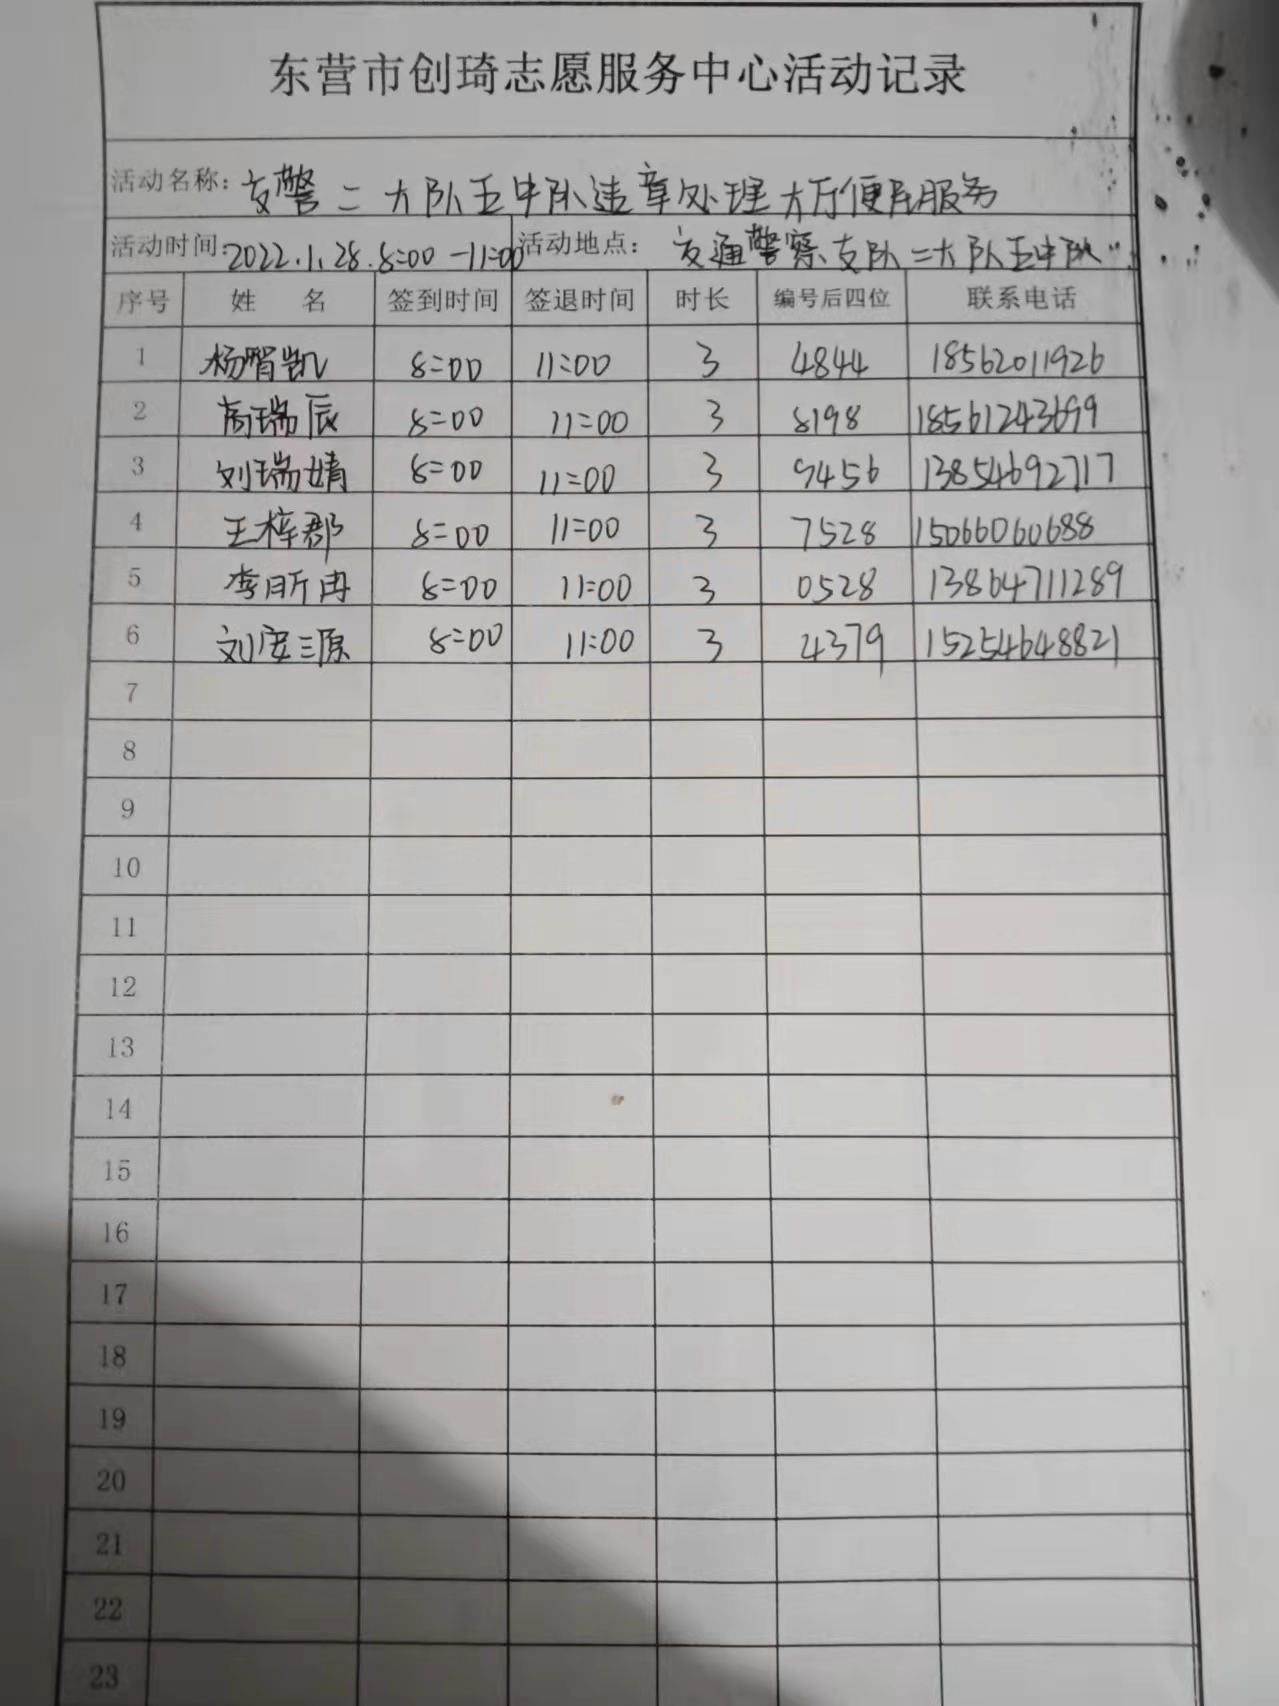 东营市创琦志愿服务中心活动记录
活动名称: 交警二大队五中队违章处理大厅便民服务
活动时间: 2022.1.28.8:00-11:00 活动地点: 交通警察支队二大队五中队
序号 姓 名 签到时间 签退时间 时长 编号后四位 联系电话
1 杨智凯 8:00 11:00 3 4844 18562011926
2 高瑞辰 8:00 11:00 3 8198 18561243699
3 刘瑞婧 8:00 11:00 3 9456 13854692717
4 王梓郡 8:00 11:00 3 7528 15066060688
5 李昕冉 8:00 11:00 3 0528 13864711289
6 刘宸三源 8:00 11:00 3 4379 15254648821
7
8
9
10
11
12
13
14
15
16
17
18
19
20
21
22
23